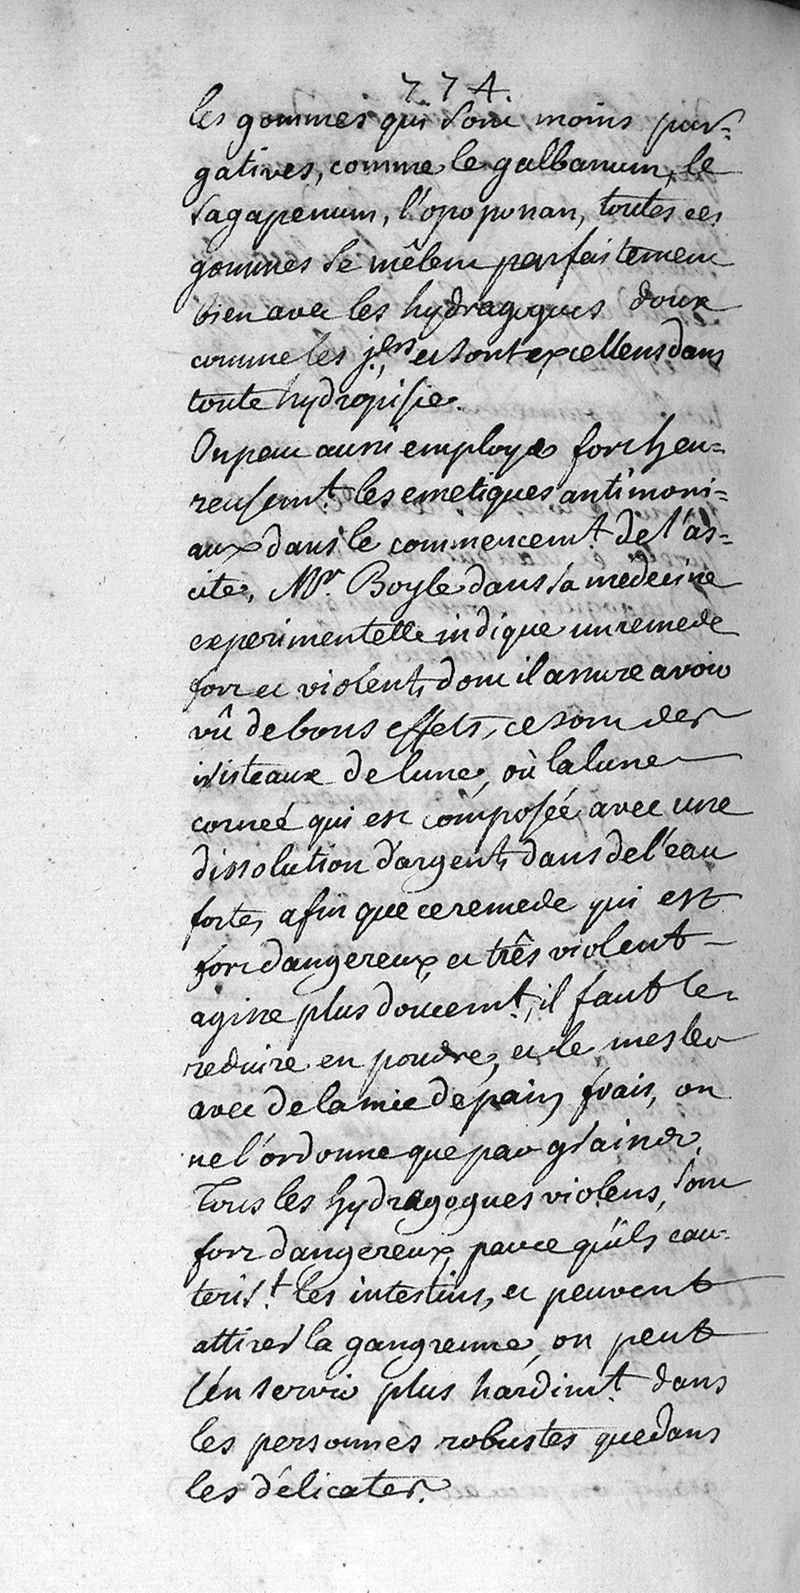 774.
les gommes qui sont moins pur=
gatives, comme le galbanum, le
sagapenum, l'opoponan, toutes ces
gommes se mêlent parfaitement
bien avec les hydragogues doux
comme les j.ers et sont excellens dans
toute hydropisie.
On peut aussi employer fort heu=
reusemt. les emetiques antimoni=
aux dans le commencemt. de l'as=
cite, Mr. Boyle dans sa medecine
experimentelle indique un remede
fort et violent, dont il assure avoir
vû de bons effets, ce sont des
cristeaux de lune, où la lune
corneé qui est composée avec une
dissolution d'argent, dans de l'eau
forte, afin que ce remede qui est
fort dangereux, et très violent
agisse plus doucemt., il faut le
reduire en poudre, et le mesler
avec de la mie de pain frais, on
ne l'ordonne que par grains.
Tous les hydragogues violens, sont
fort dangereux, parce qu'ils cau=
teris.t les intestins, et peuvent
attirer la gangrenne, on peut
s'en servir plus hardimt. dans
les personnes robustes que dans
les délicates.